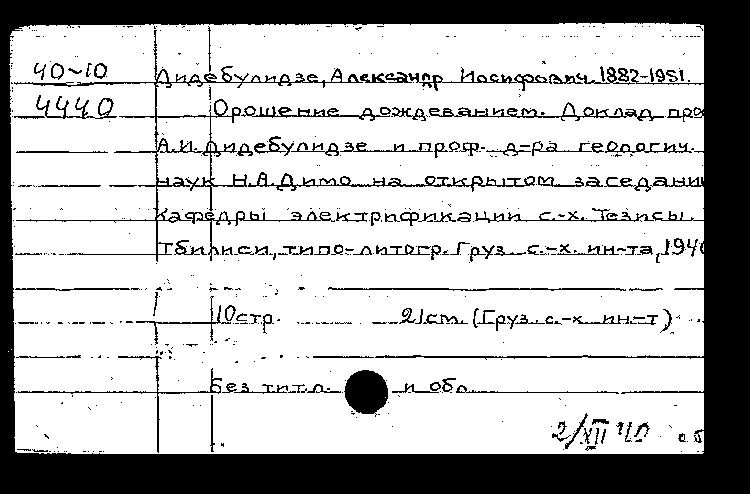 40-10 Дидебулидзе, Александр Иосифович. 1882-1951.
4440 Орошение дождеванием. Доклад про
А.И. Дидебулидзе и проф. д-ра геологич.
наук Н.А. Димо на открытом заседани
кафедры электрификации с.-х. Тезисы.
Тбилиси, типо-литогр. Груз. с.-х. ин-та, 1940
10 стр. 21 см. (Груз. с.-х. ин-т)
Без тит. л. и обл.
2/XII 40